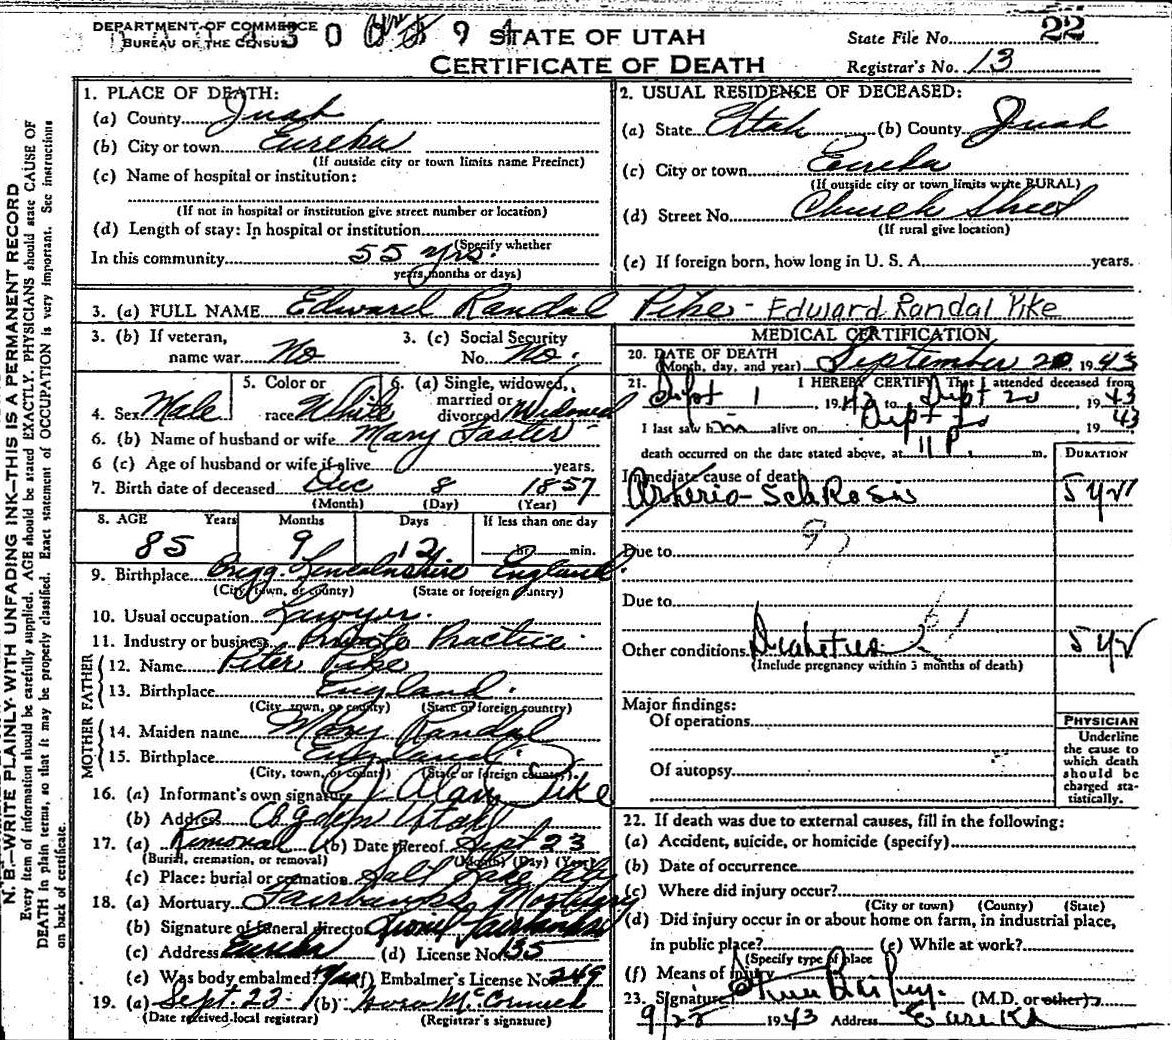 DEPARTMENT OF COMMERCE
BUREAU OF THE CENSUS
STATE OF UTAH
CERTIFICATE OF DEATH
State File No. 22
Registrar's No. 13
N. B.—WRITE PLAINLY WITH UNFADING INK—THIS IS A PERMANENT RECORD
Every item of information should be carefully supplied. AGE should be stated EXACTLY. PHYSICIANS should state CAUSE OF
DEATH in plain terms, so that it may be properly classified. Exact statement of OCCUPATION is very important. See instructions
on back of certificate.
1. PLACE OF DEATH:
(a) County Juab
(b) City or town Eureka
(If outside city or town limits name Precinct)
(c) Name of hospital or institution:
(If not in hospital or institution give street number or location)
(d) Length of stay: In hospital or institution
(Specify whether
In this community 55 yrs.
years, months or days)
2. USUAL RESIDENCE OF DECEASED:
(a) State Utah (b) County Juab
(c) City or town Eureka
(If outside city or town limits write RURAL)
(d) Street No. Church Street
(If rural give location)
(e) If foreign born, how long in U. S. A. years.
3. (a) FULL NAME Edward Randal Pike - Edward Randal Pike
3. (b) If veteran, name war No
3. (c) Social Security No. No.
4. Sex Male
5. Color or race White
6. (a) Single, widowed, married or divorced Widowed
6. (b) Name of husband or wife Mary Foster
6 (c) Age of husband or wife if alive years.
7. Birth date of deceased Dec 8 1857
(Month) (Day) (Year)
8. AGE Years Months Days If less than one day
85 9 12 hr. min.
9. Birthplace Brigg. Lincolnshire England
(City, town, or county) (State or foreign country)
10. Usual occupation Lawyer.
11. Industry or business Private Practice.
FATHER
12. Name Peter Pike
13. Birthplace England.
(City, town, or county) (State or foreign country)
MOTHER
14. Maiden name Mary Randal
15. Birthplace England.
(City, town, or county) (State or foreign country)
16. (a) Informant's own signature J. Alan Pike
(b) Address Ogden Utah
17. (a) Removal (b) Date thereof Sept 23
(Burial, cremation, or removal) (Month) (Day) (Year)
(c) Place: burial or cremation Salt Lake City
18. (a) Mortuary Fairbanks Mortuary
(b) Signature of funeral director Fairbanks
(c) Address Eureka (d) License No. 135
(e) Was body embalmed? (f) Embalmer's License No. 249
19. (a) Sept. 23 (b) Nora McCormick
(Date received local registrar) (Registrar's signature)
MEDICAL CERTIFICATION
20. DATE OF DEATH
(Month, day, and year) September 20, 1943
21. I HEREBY CERTIFY That I attended deceased from
Sept 1, 1943 to Sept 20, 1943
I last saw him alive on Sept 20 1943
death occurred on the date stated above, at 11 P. m.
DURATION
Immediate cause of death
Arterio-Sclerosis 5 yrs
Due to
Due to
Other conditions Diabetes 61 5 yr
(Include pregnancy within 3 months of death)
Major findings:
Of operations
Of autopsy
PHYSICIAN
Underline
the cause to
which death
should be
charged sta-
tistically.
22. If death was due to external causes, fill in the following:
(a) Accident, suicide, or homicide (specify)
(b) Date of occurrence
(c) Where did injury occur?
(City or town) (County) (State)
(d) Did injury occur in or about home on farm, in industrial place,
in public place? (e) While at work?
(Specify type of place
(f) Means of injury
23. Signature Bailey. (M.D. or other)
9/22 1943 Address Eureka